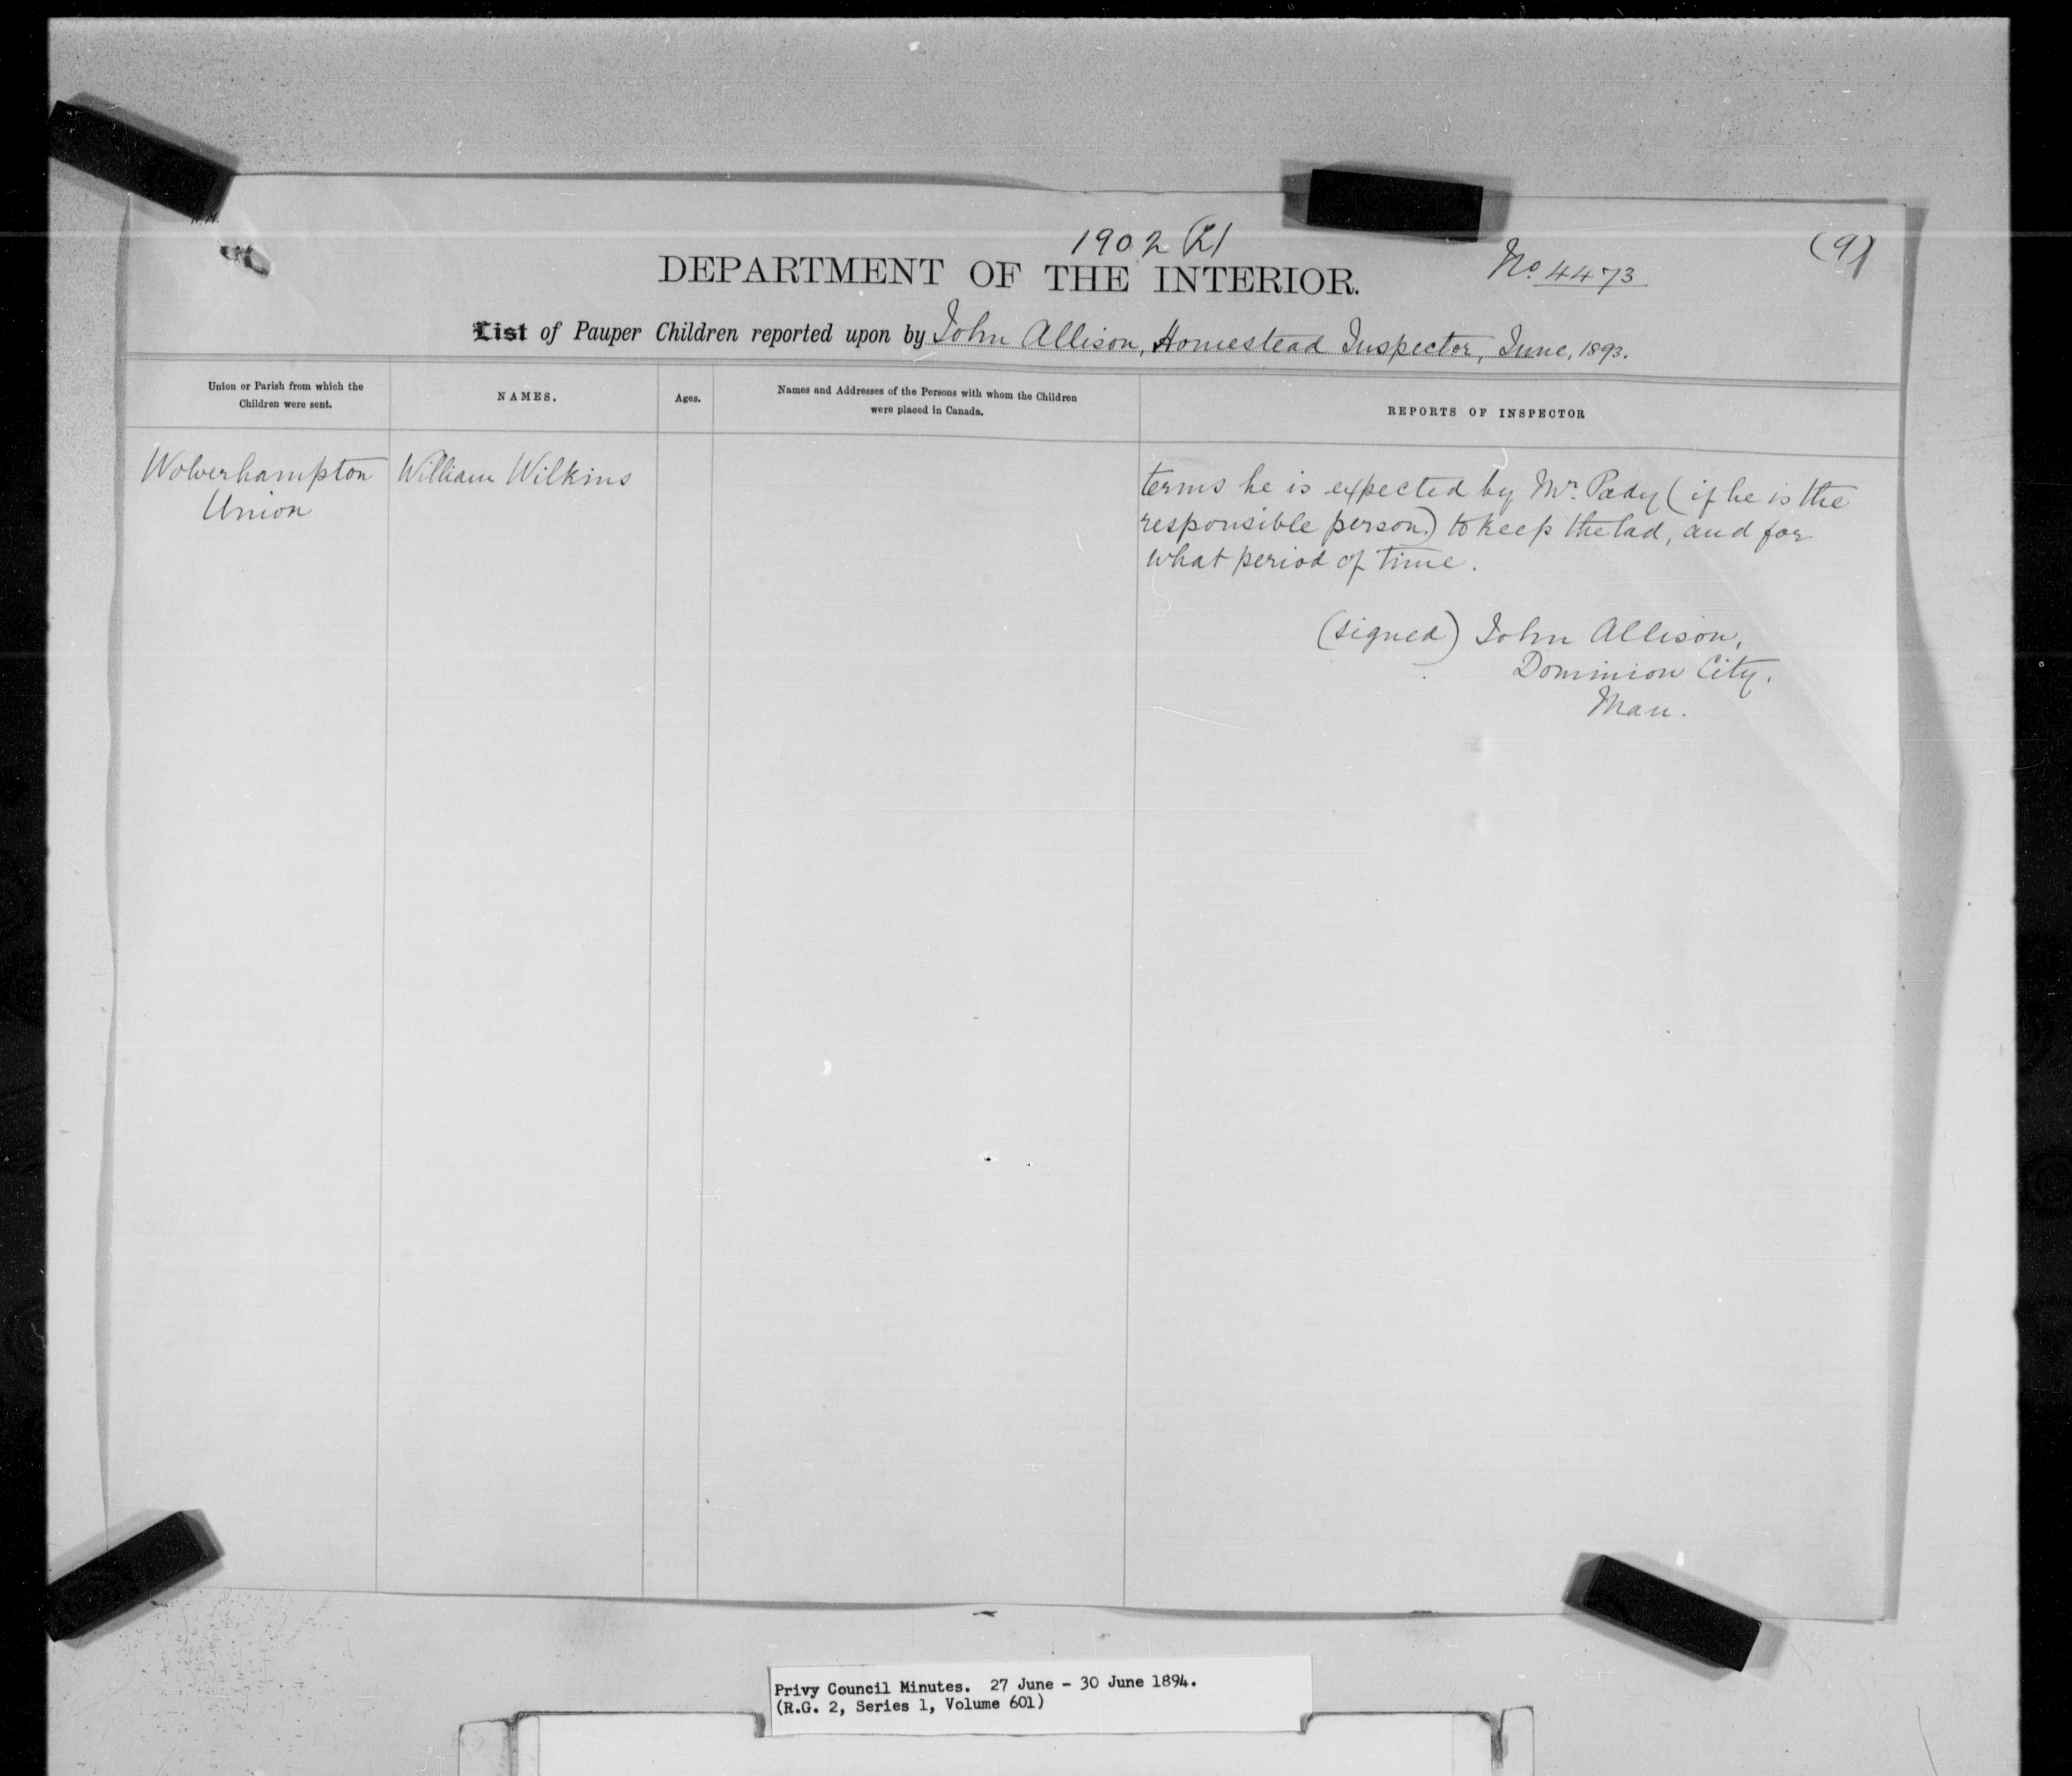 1902
DEPARTMENT OF THE INTERIOR.
No. 4473
(9)
List of Pauper Children reported upon by John Allison, Homestead Inspector, June, 1893.
Union or Parish from which the
Children were sent.
NAMES.
Ages.
Names and Addresses of the Persons with whom the Children
were placed in Canada.
REPORTS OF INSPECTOR
Wolverhampton
Union
William Wilkins
terms he is expected by Mr. Pady (if he is the
responsible person) to keep the lad, and for
what period of time.
(signed) John Allison,
Dominion City.
Man.
Privy Council Minutes. 27 June - 30 June 1894.
(R.G. 2, Series 1, Volume 601)